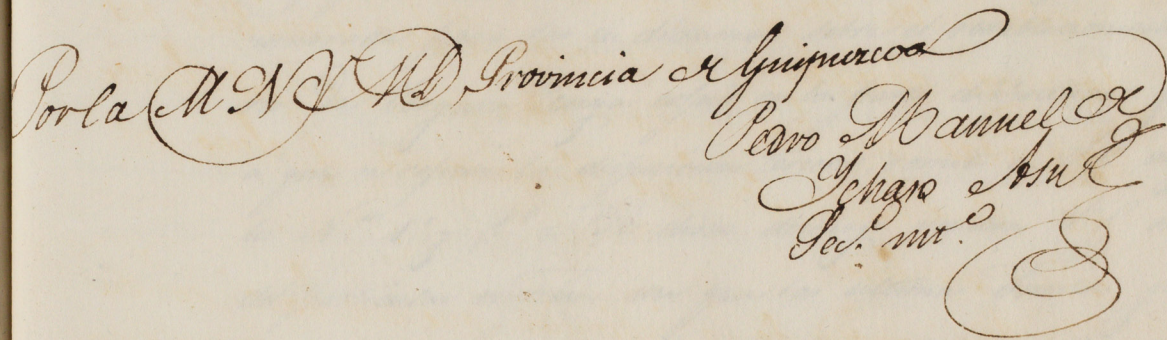 Por la M N Y M L Provincia de Guipuzcoa
Pedro Manuel de
Ychaso Asu
Sec.º int.º